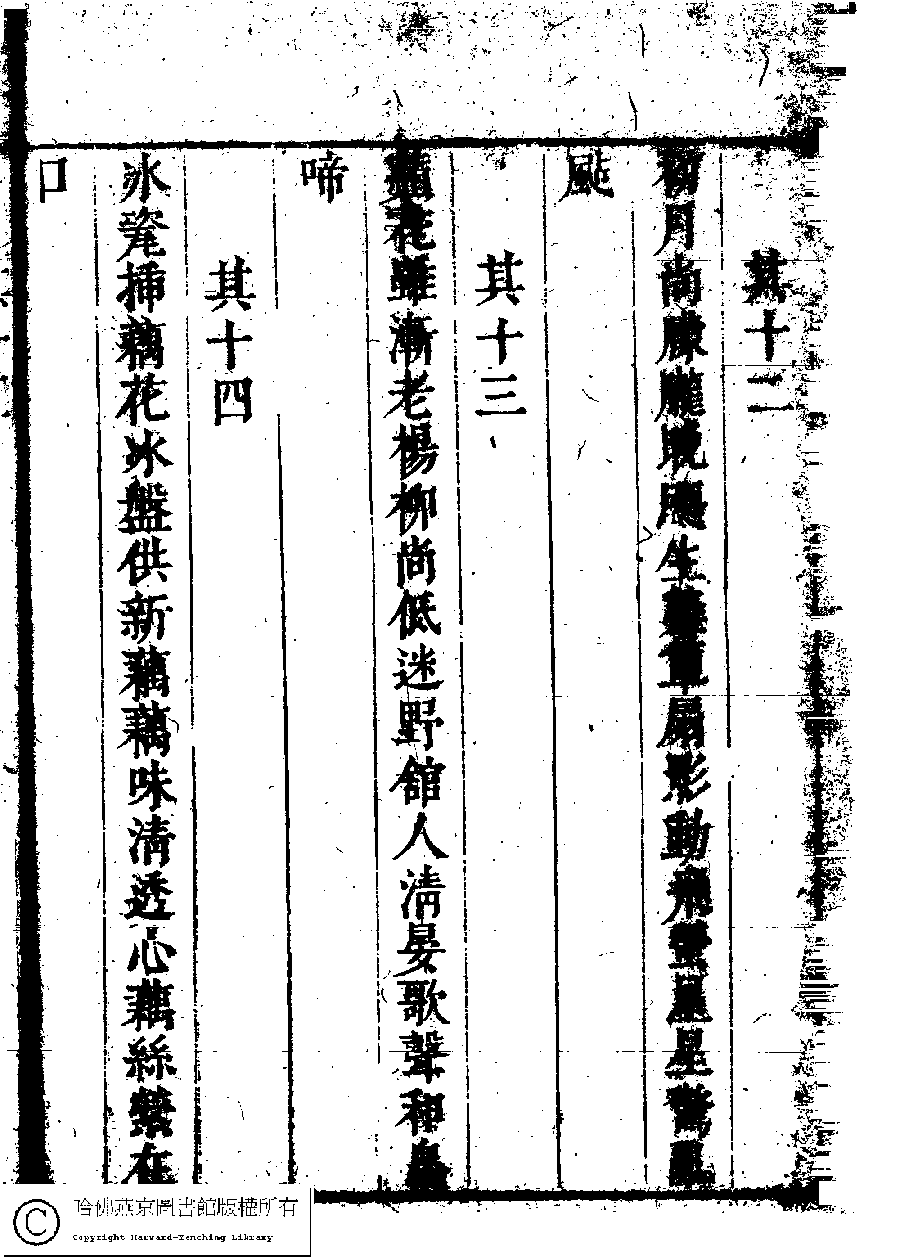 其十二
初月尚朦朧晚生草扇影動飛螢星星驚
颭
其十三
花雖漸老楊柳尚低迷野舘人清晏歌聲和鳥
啼
其十四
冰瓷插藕花冰盤供新藕藕味清透心藕絲縈在
口
哈佛燕京圖書館版權所有
Copyright Harvard-Yenching Library